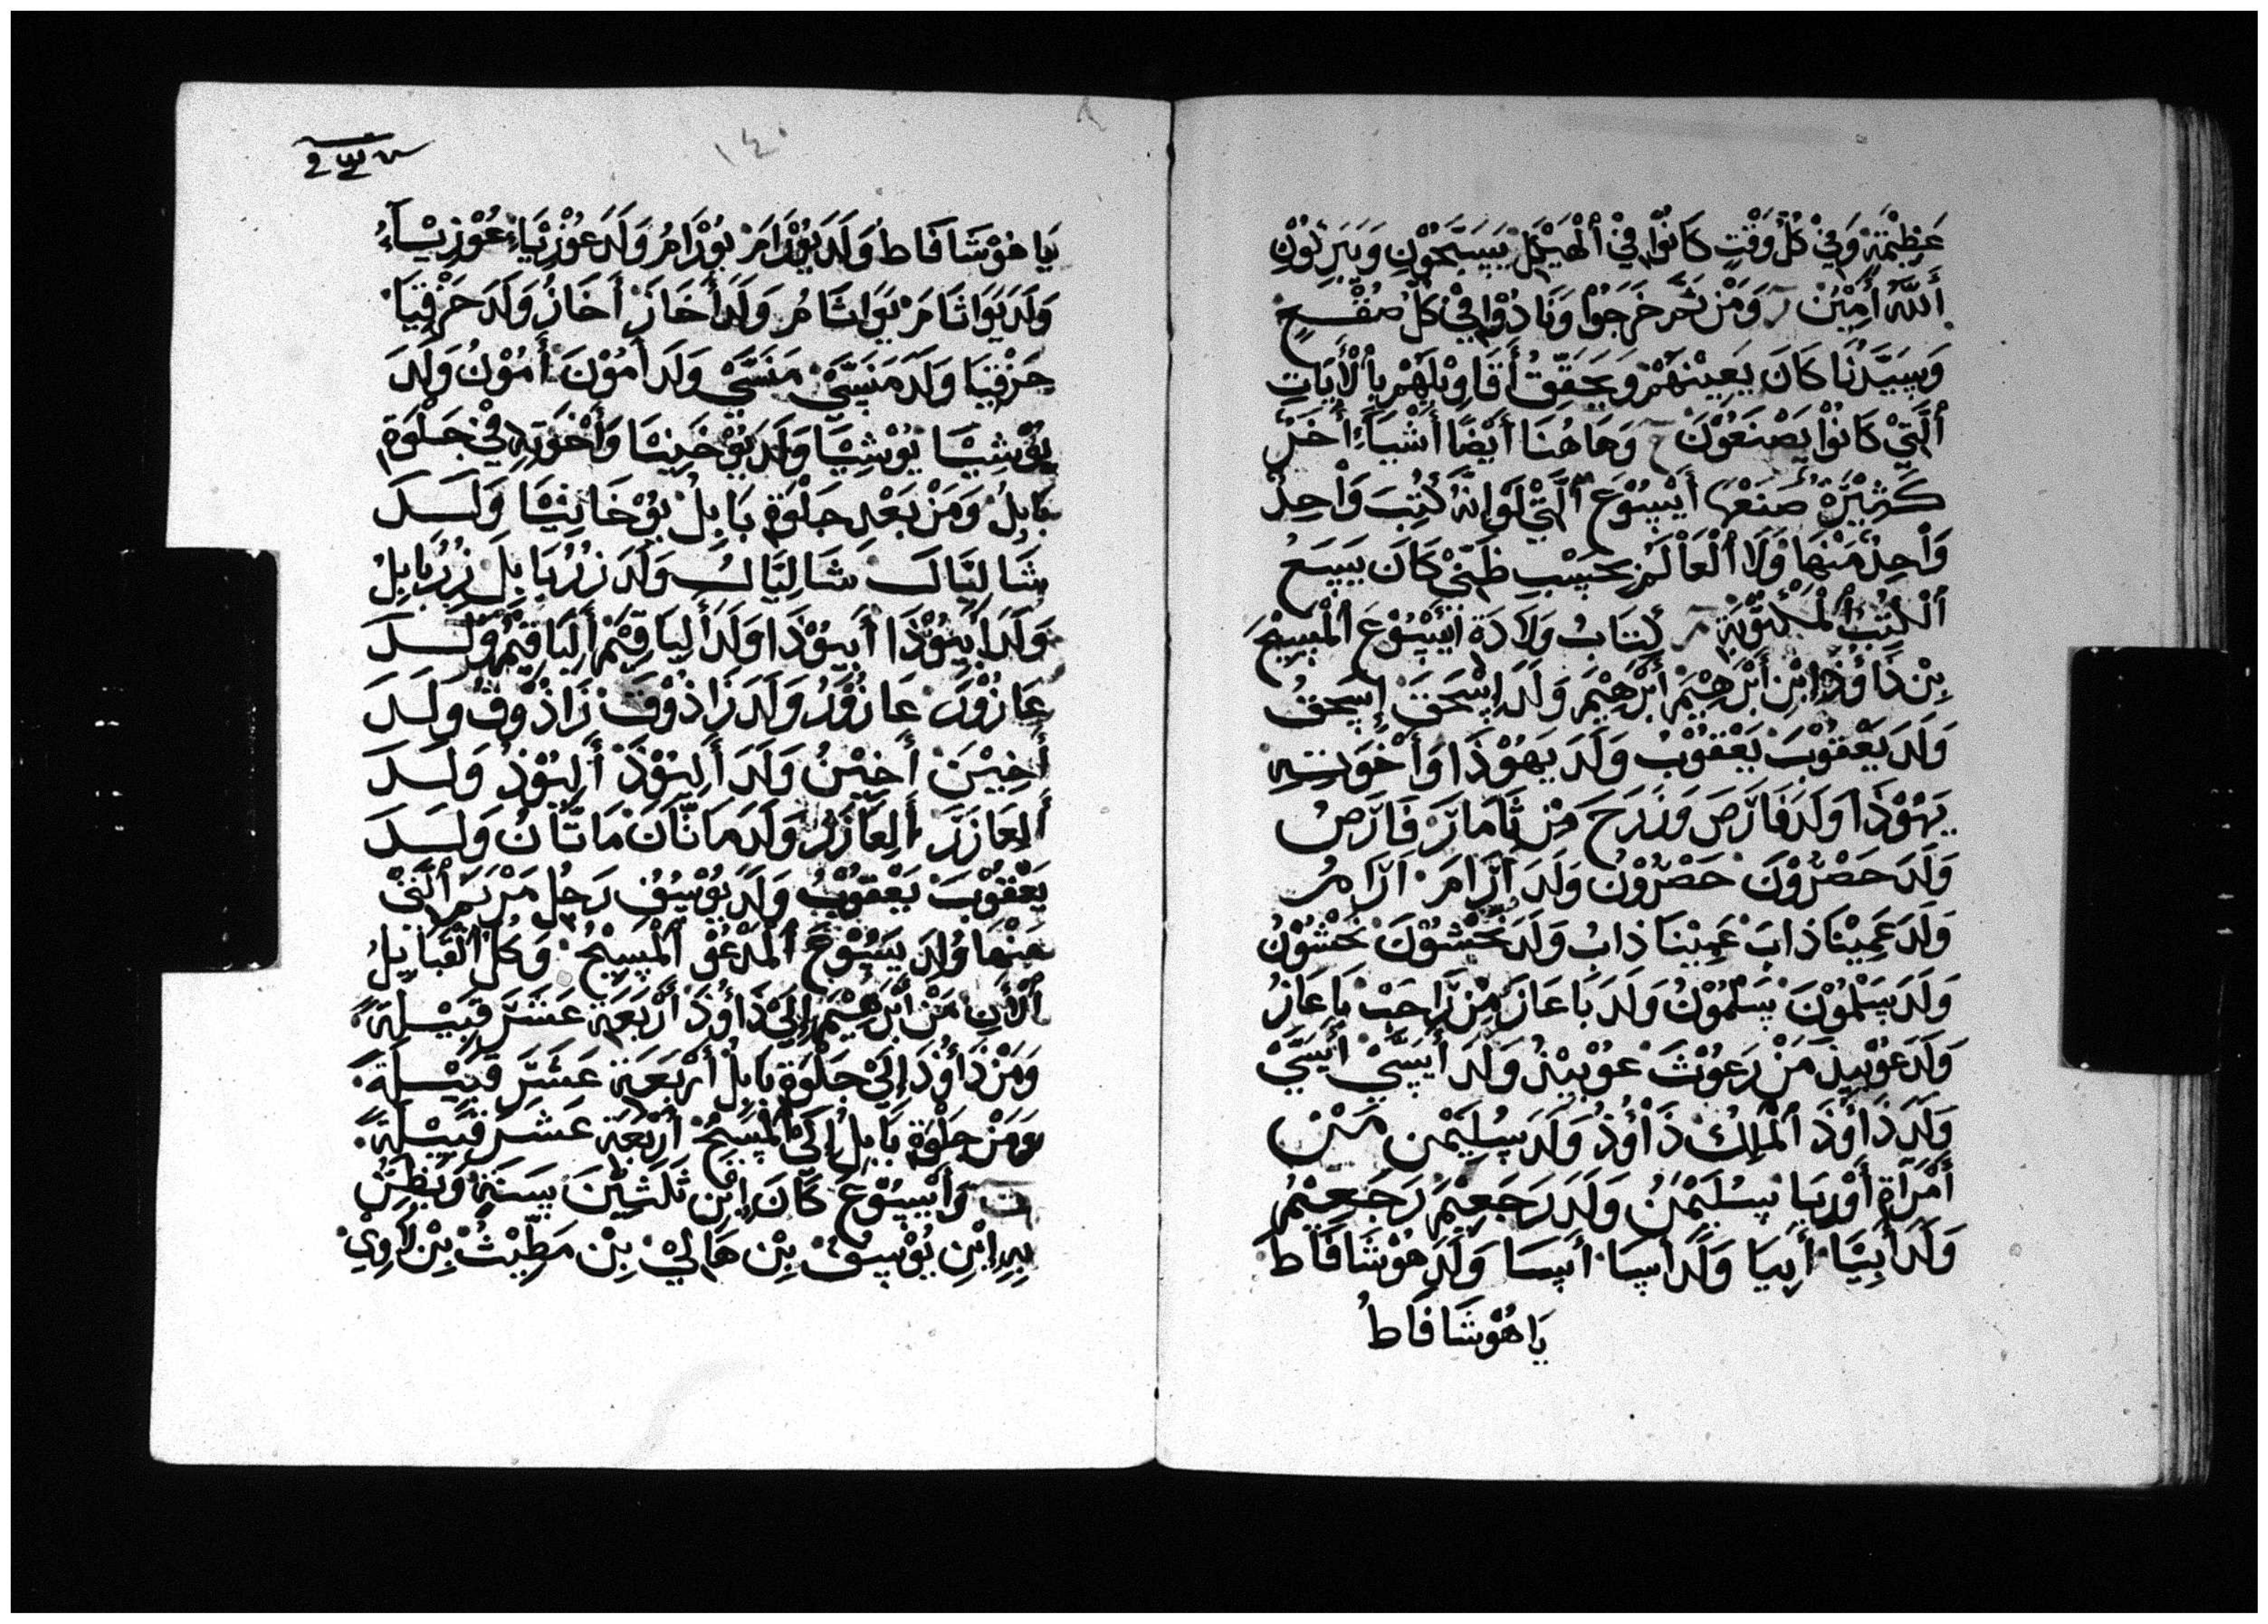 عَظِيْمَةٍ وَفِيْ كُلِّ وَقْتٍ كَانُوْا فِيْ ٱلْهَيْكَلِ يُسَبِّحُوْنَ وَيُبَرِكُوْنَ
أَللّٰهَ أَمِيْنْ وَمَنْ ثَمَّ خَرَجُوْا وَنَاذُوْا فِيْ كُلِّ صُقْعٍ
وَسَيِّدُنَا كَانَ يُعِيْنُهُمْ وَيُحَقِّقُ أَقَاوِيْلَهُمْ بِأَلْأَيَاتِ
ٱلَّتِيْ كَانُوْا يَصْنَعُوْنَ وَهَاهُنَا أَيْضًا أَشْيَاءُ أُخَرُ
كَثِيْرَةٌ صَنَعْهَا أَيْسُوْعَ ٱلَّتِيْ لَوْ انَّهُ كُتِبَ وَاْحِدٌ
وَاْحِدٌ مَنْهَا وَلَا ٱلْعَاْلَمُ بِحَسْبِ ظَنِّيْ كَانَ يَسَعُ
ٱلْكُتُبَ ٱلْمَكْتُوْبَةَ كِتَابُ وَلَادَةِ أَيْسُوْعَ ٱلْمَسِيْحِ
بِنْ دَاوُذَ إِبْنِ أَبْرَهِيْمَ أَبْرَهِيْمَ وَلَدَ إِسْحَقَ إِسْحَقُ
وَلَدَ يَعْقُوْبَ يَعْقُوْبُ وَلَدَ يَهُوْذَا وَأَخْوَتِهِ
يَهُوْذَا وَلَدَ فَارَصَ وَزَرَحَ مِنْ ثَامَارَ فَارَصُ
وَلَدَ حَصْرُوْنَ حَصْرُوْنُ وَلَدَ ارَّامَ ارَّامُ
وَلَدَ عَمِيْنَاذَابَ عَمِيْنَاذَابُ وَلَدَ نَحْشُوْنَ نَحْشُوْنُ
وَلَدَ سَلْمُوْنَ سَلْمُوْنُ وَلَدَ بَاعَازَ مِنْ رَاحَبْ بَاعَازُ
وَلَدَ عُوْبِيْذَ مَنْ رَعُوْثَ عُوْبِيْذُ وَلَدَ أَيْسَّيْ أَيْسَّيْ
وَلَدَ دَاوُذَ ٱلْمَلِكَ دَاوُذُ وَلَدَ سُلِيْمَن مَنْ
أَمْرَأَةِ أَوْرِيَا سُلَيْمَنُ وَلَدَ رَجَعِيْمَ رَجَعِيْمُ
وَلَدَ أَبِيَا أَبِيَا وَلَدَ اسَا أَسَا وَلَدَ هُوْشَافَاطَ
يَاهُوْشَافَاطُ
١٤
يَاهُوْشَافَاطُ وَلَدَ يُوْرَامَ يُوْرَامُ وَلَدَ عُوْزِيَاءَ عُوْزِيَاءُ
وَلَدَ يَوَاثَامَ يَوَاثَامُ وَلَدَ أَحَازَ أَحَازُ وَلَدَ حَزْقِيَا
حَزْقِيَا وَلَدَ مَنَسَّيْ مَنَسَّيْ وَلَدَ أَمُوْنَ أَمُوْنُ وَلَدَ
يُوْشِيَّا يُوْشِيَّا وَلَدَ يُوْخَنِيَّا وَأَخْوَتِهِ فِيْ جَلْوَةِ
بَابِلْ وَمَنْ بَعْدِ جَلْوَةِ بَابِلْ يُوْخَانِيَّا وَلَدَ
شَالِتَّالَ شَالِتَّالُ وَلَدَ زُرُبَابِلَ زُرُبَابِلُ
وَلَدَ أَبِيُوْذَا أَبِيُوْذَا وَلَدَ أَلِيَاقِيْمَ أَلِيَاقِيْمُ وَلَدَ
عَازُوْرَ عَازُوْرُ وَلَدَ زَاذُوْقَ زَاذُوْقُ وَلَدَ
أَخِيْنَ أَخِيْنُ وَلَدَ أَلِيُوْذَ أَلِيُوْذُ وَلَدَ
أَلِعَازَرَ أَلِعَازَرُ وَلَدَ مَاتَّانَ مَاتَّانُ وَلَدَ
يَعْقُوْبَ يَعْقُوْبُ وَلَدَ يُوْسُفَ رَجُلِ مَرْيَمَ ٱلَّتِيْ
مَنْهَا وُلِدَ يَسُوْعَ ٱلْمَدْعُوْ ٱلْمَسِيْحُ وَكُلُّ ٱلْقَبَايِلُ
ٱلْأَنَ مَنْ أَبْرَهِيْمَ إِلَيْ دَاوُذَ أَرْبَعَةَ عَشَرَ قَبِيْلَةً
وَمَنْ دَاوُذَ إِلَيْ جَلْوَةِ بَابِلْ أَرْبَعَةَ عَشَرَ قَبِيْلَةً
وَمَنْ جَلْوَةِ بَابِلْ إِلَيْ ٱلْمَسِيْحْ أَرْبَعَةَ عَشَرَ قَبِيْلَةً
وَأَيْسُوْعَ كَانَ إِبْنِ ثَلَثِيْنَ سَنَةٍ وَيُظَنُّ
بِهِ إِبْنِ يُوْسُفْ بِنْ هَالِيْ بِنْ مَطِيْثْ بِنْ لَاوِيْ